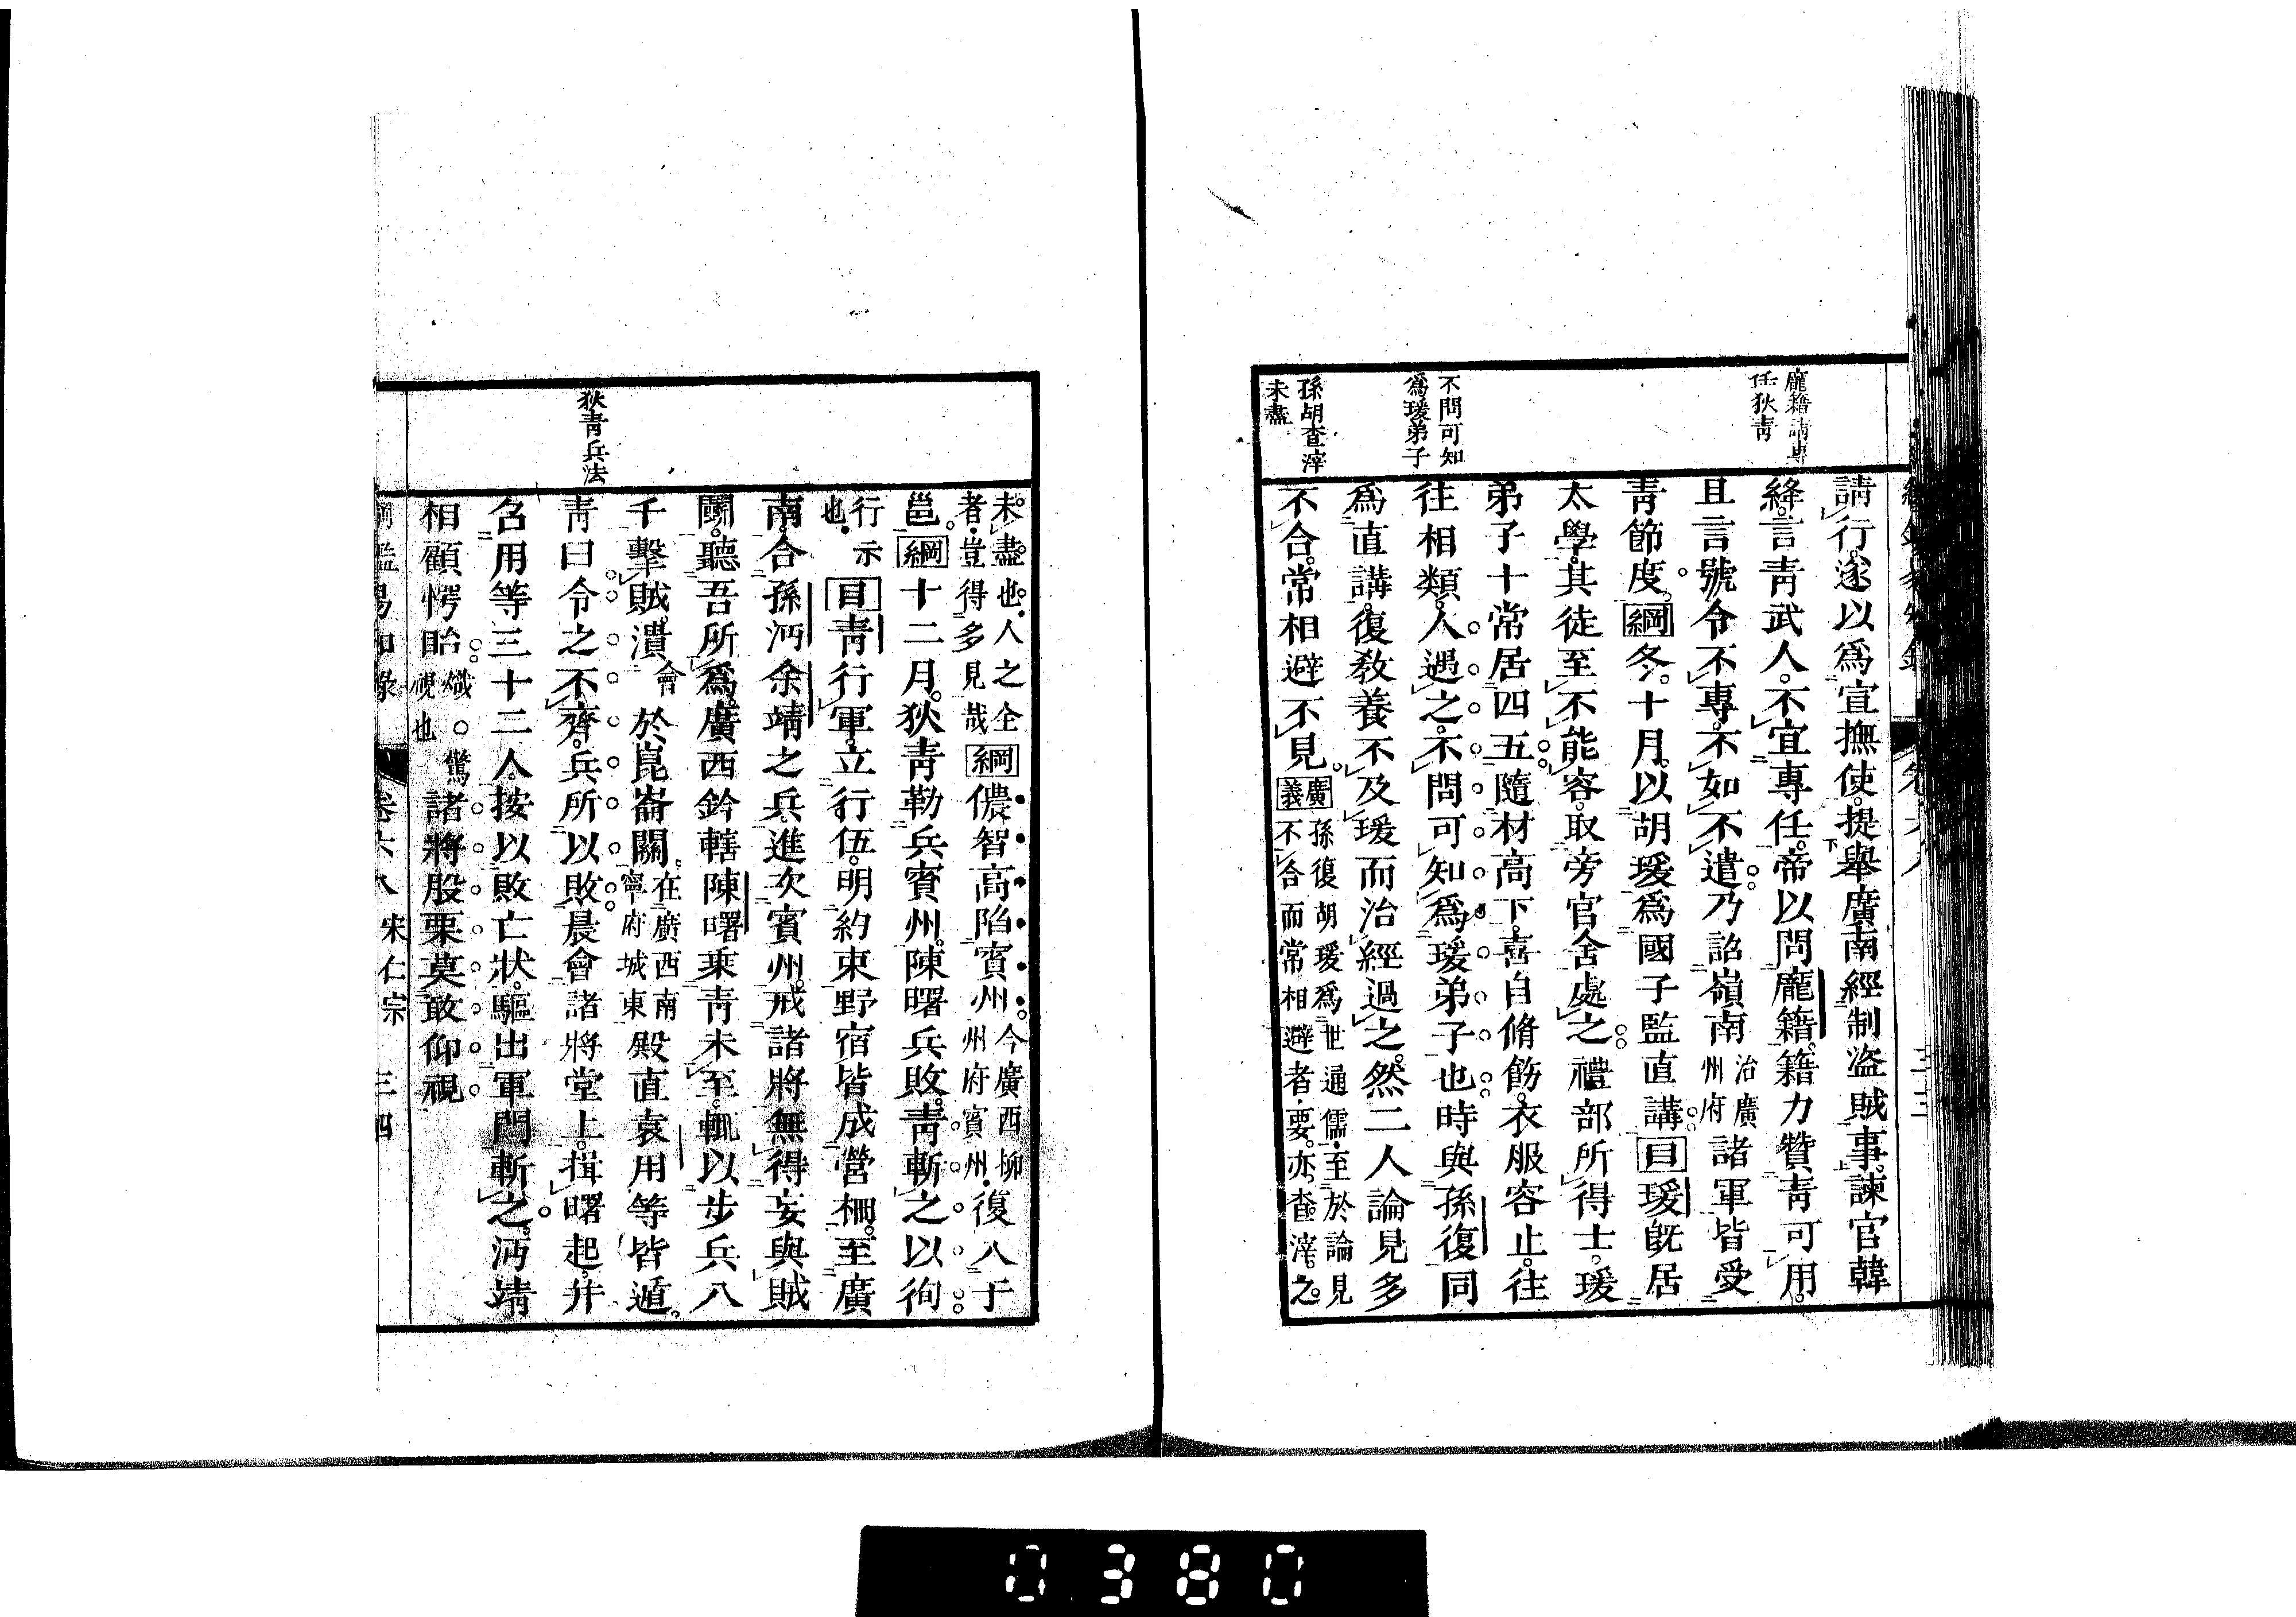 龐籍請專
任狄靑
不問可知
爲瑗弟子
孫胡查滓
未盡
請行。遂以爲宣撫使。提舉廣南經制盜賊事。諫官韓
絳。言靑武人。不宜專任。帝以問龐籍。籍力贊靑可用。
且言號令不專。不如不遣。乃詔嶺南治廣州府諸軍皆受
靑節度。綱冬。十月。以胡瑗爲國子監直講。目瑗旣居
太學。其徒至不能容。取旁官舍處之。禮部所得士。瑗
弟子十常居四五。隨材高下。喜自脩飭。衣服容止。往
往相類。人遇之。不問可知爲瑗弟子也。時與孫復同
爲直講。復敎養不及瑗而治經過之。然二人論見多
不合。常相避不見。廣義孫復胡瑗爲世通儒至於論見不合而常相避者要亦查滓之
未盡也。人之全者豈得多見哉綱儂智高陷賓州。今廣西柳州府賓州復入于
邕。綱十二月。狄靑勒兵賓州。陳曙兵敗。靑斬之以徇
行示也目靑行軍。立行伍。明約束。野宿皆成營柵。至廣
南。合孫沔余靖之兵。進次賓州。戒諸將無得妄與賊
鬭。聽吾所爲。廣西鈐轄陳曙乘靑未至。輒以步兵八
千擊賊。潰會於崑崙關。在廣西南寧府城東殿直袁用等皆遁。
靑曰令之不齊。兵所以敗。晨會諸將堂上。揖曙起。幷
召用等三十二人。按以敗亡狀。驅出軍門斬之。沔靖
相顧愕眙熾。驚視也諸將股栗莫敢仰視
狄靑兵法
綱鑑易知錄 卷六八 宋仁宗 三四
0380